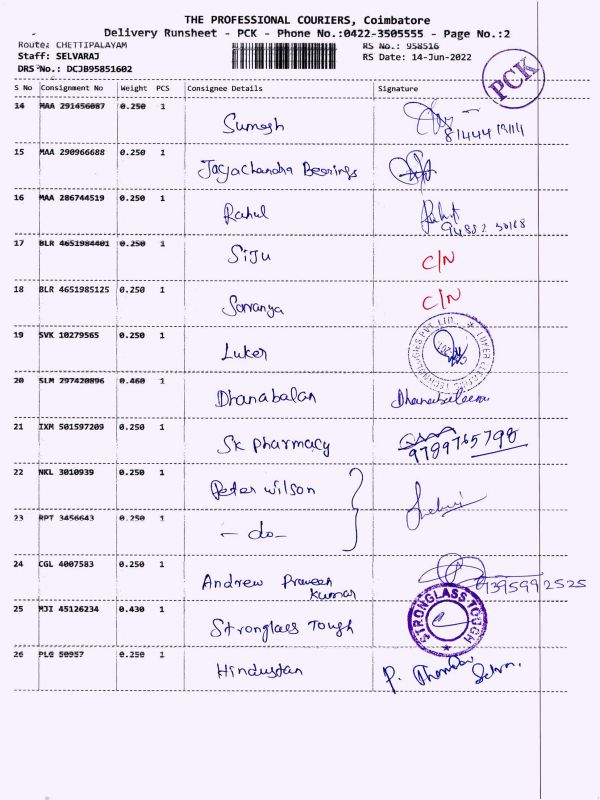 THE PROFESSIONAL COURIERS, Coimbatore
Delivery Runsheet - PCK - Phone No.:0422-3505555 - Page No.:2
Route: CHETTIPALAYAM RS No.: 958516
Staff: SELVARAJ RS Date: 14-Jun-2022
DRS No.: DCJB95851602
PCK
S No Consignment No Weight PCS Consignee Details Signature
14 MAA 291456087 0.250 1
Sumesh
81444
15 MAA 290966688 0.250 1
Jayachandra Bearings
16 MAA 286744519 0.250 1
Rahul
94882
17 BLR 4651984401 0.250 1
SiJu C/N
18 BLR 4651985125 0.250 1
Sowranya C/N
19 SVK 10279565 0.250 1
Luker
20 SLM 297420896 0.460 1
Dhanabalan
21 IXM 501597209 0.250 1
Sk pharmacy
9789765798
22 NKL 3010939 0.250 1
Peter Wilson
23 RPT 3456643 0.250 1
- do -
24 CGL 4007583 0.250 1
Andrew Praveen
Kumar
9395992525
25 MJI 45126234 0.430 1
Stronglaes Tough
STRONGLASS TOUGH
26 PLG 50957 0.250 1
Hindustan P.